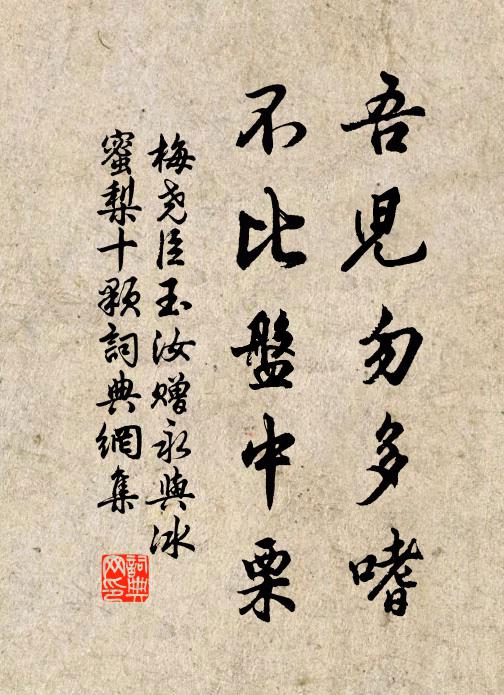 吾児勿多嗜
不比盤中栗
梅尭臣玉汝赠永興冰
蜜梨十顆詞典網集
詞典
网印